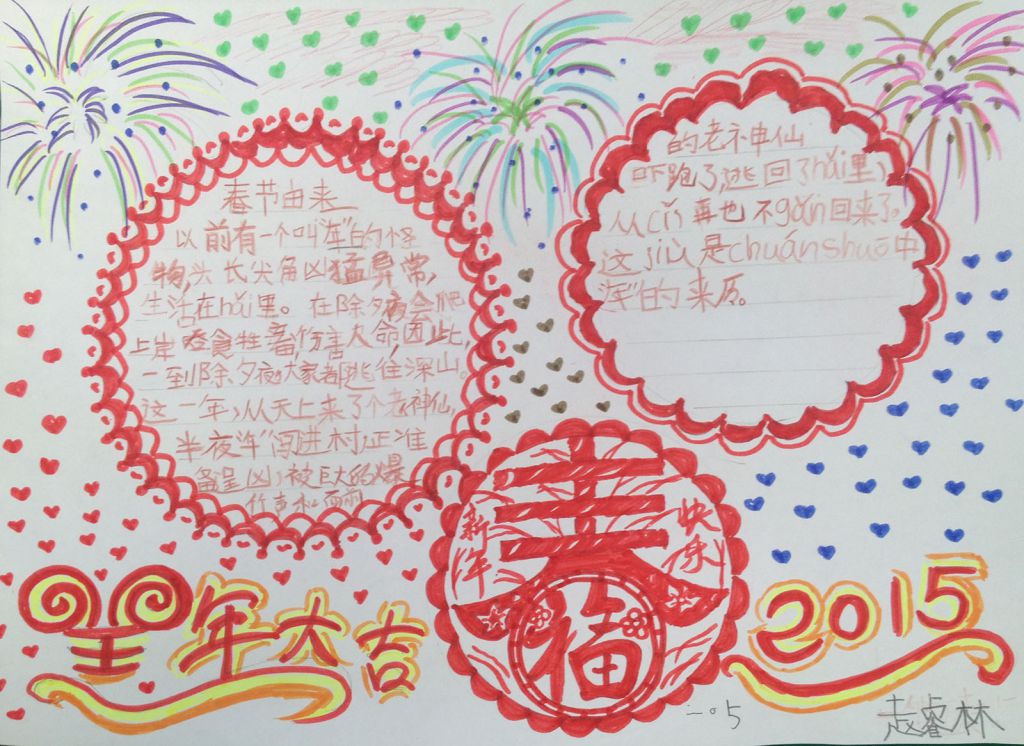 春节由来
以前有一个叫"年"的怪
物,头长尖角凶猛异常,
生活在hǎi里。在除夕夜会爬
上岸吞食牲畜伤害人命因此,
一到除夕夜,大家都逃往深山。
这一年,从天上来了个老神仙,
半夜"年"闯进村,正准
备呈凶,被巨大的爆
竹声和
的老神仙
吓跑了,逃回了hǎi里,
从cǐ再也不gǎn回来了。
这jiù是chuánshuō中
"年"的来历。
新年
快乐
春
福
羊年大吉
2015
二〇5
赵睿林